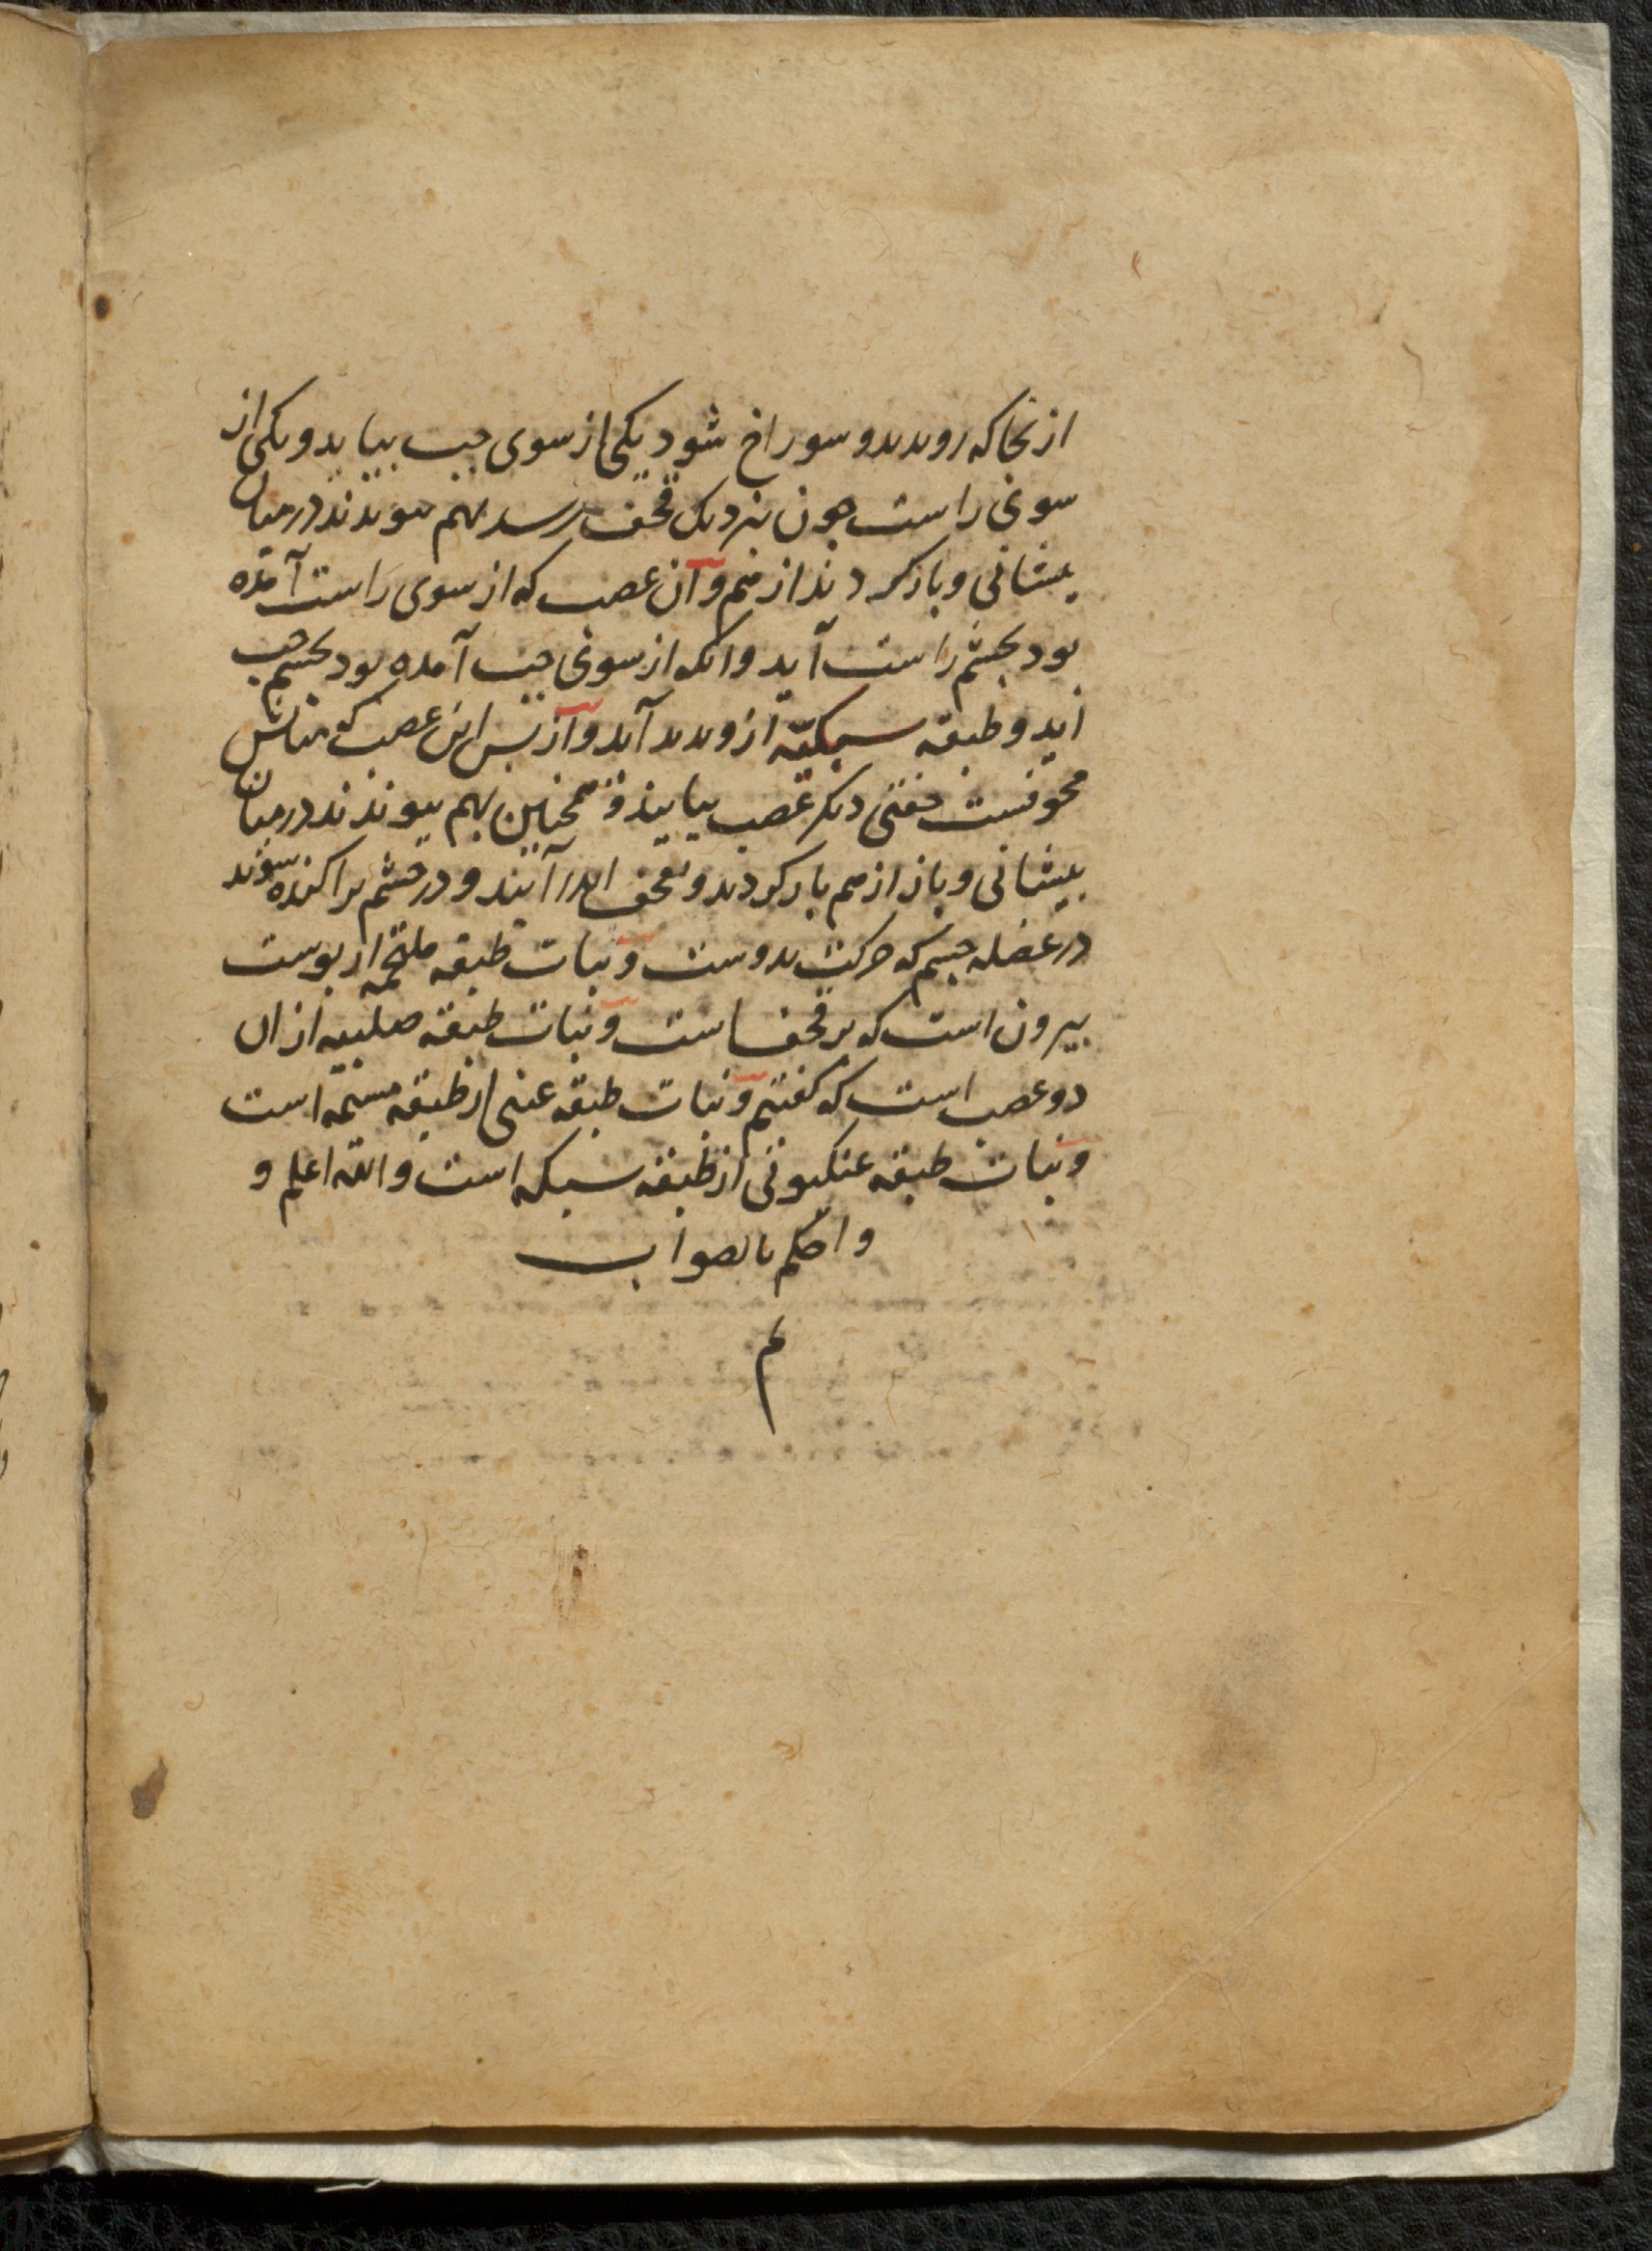 ازنجا که روید بدو سوراخ شود یکی از سوی جب بیاید و یکی از
سوی راست جون نزدیک قحف رسد بهم بیوندند در میان
بیشانی و باز کردند از هم و آن عصب که از سوی راست آمده
بود بجشم راست آید و انکه از سوی جب آمده بود بجشم جب
اید و طبقه سبکیّه ازو بدید آید و از بس این عصب که میانش
مجوفست جفتی دیکر عصب بیایند و همجنین بهم بیوندند در میان
بیشانی و باز از هم باز کردند و بقحف اندر آیند و در جشم براکنده شوند
در عضله جشم که حرکت بدوست و نبات طبقه ملتحمه از بوست
بیرون است که بر قحف است و نبات طبقه صلبیه از ان
دو عصب است که کفتیم و نبات طبقه عنبی از طبقه مسمه است
و نبات طبقه عنکبوتی از طبقه سبکه است و الله اعلم و
و احکم بالصواب
م